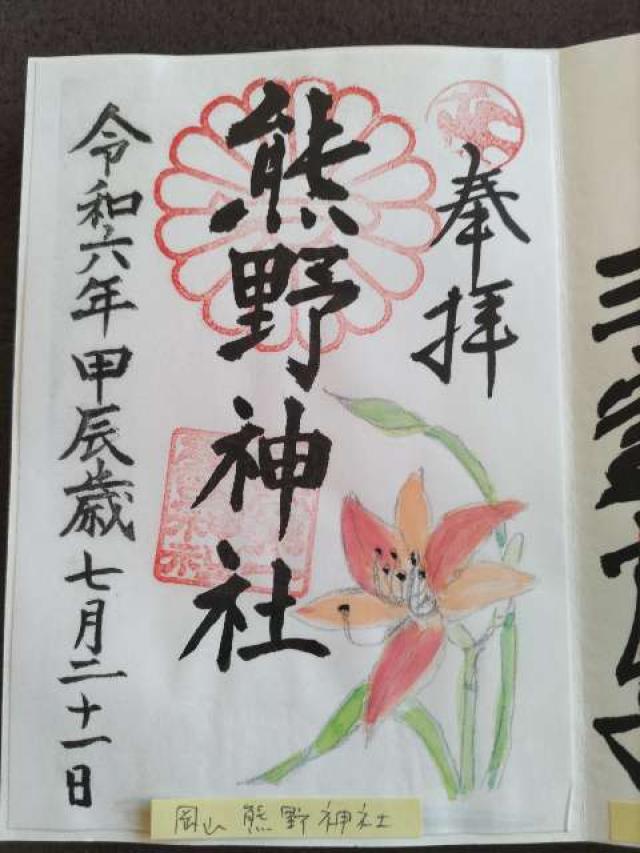 奉拝
熊野神社
令和六年甲辰歳七月二十一日
岡山熊野神社